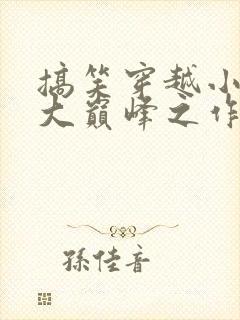 搞笑穿越小
大巔峰之作
孫佳音